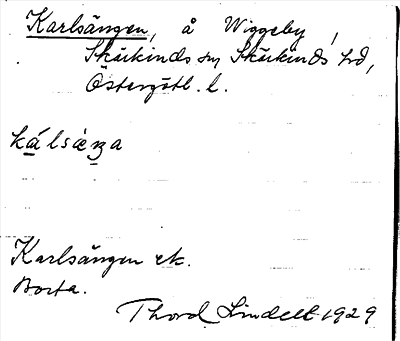 Karlsängen, å Wiggeby,
Skärkinds sn Skärkinds hd,
Östergötl. l.
Karlsängen ek.
Borta.
Thord Lindell 1929